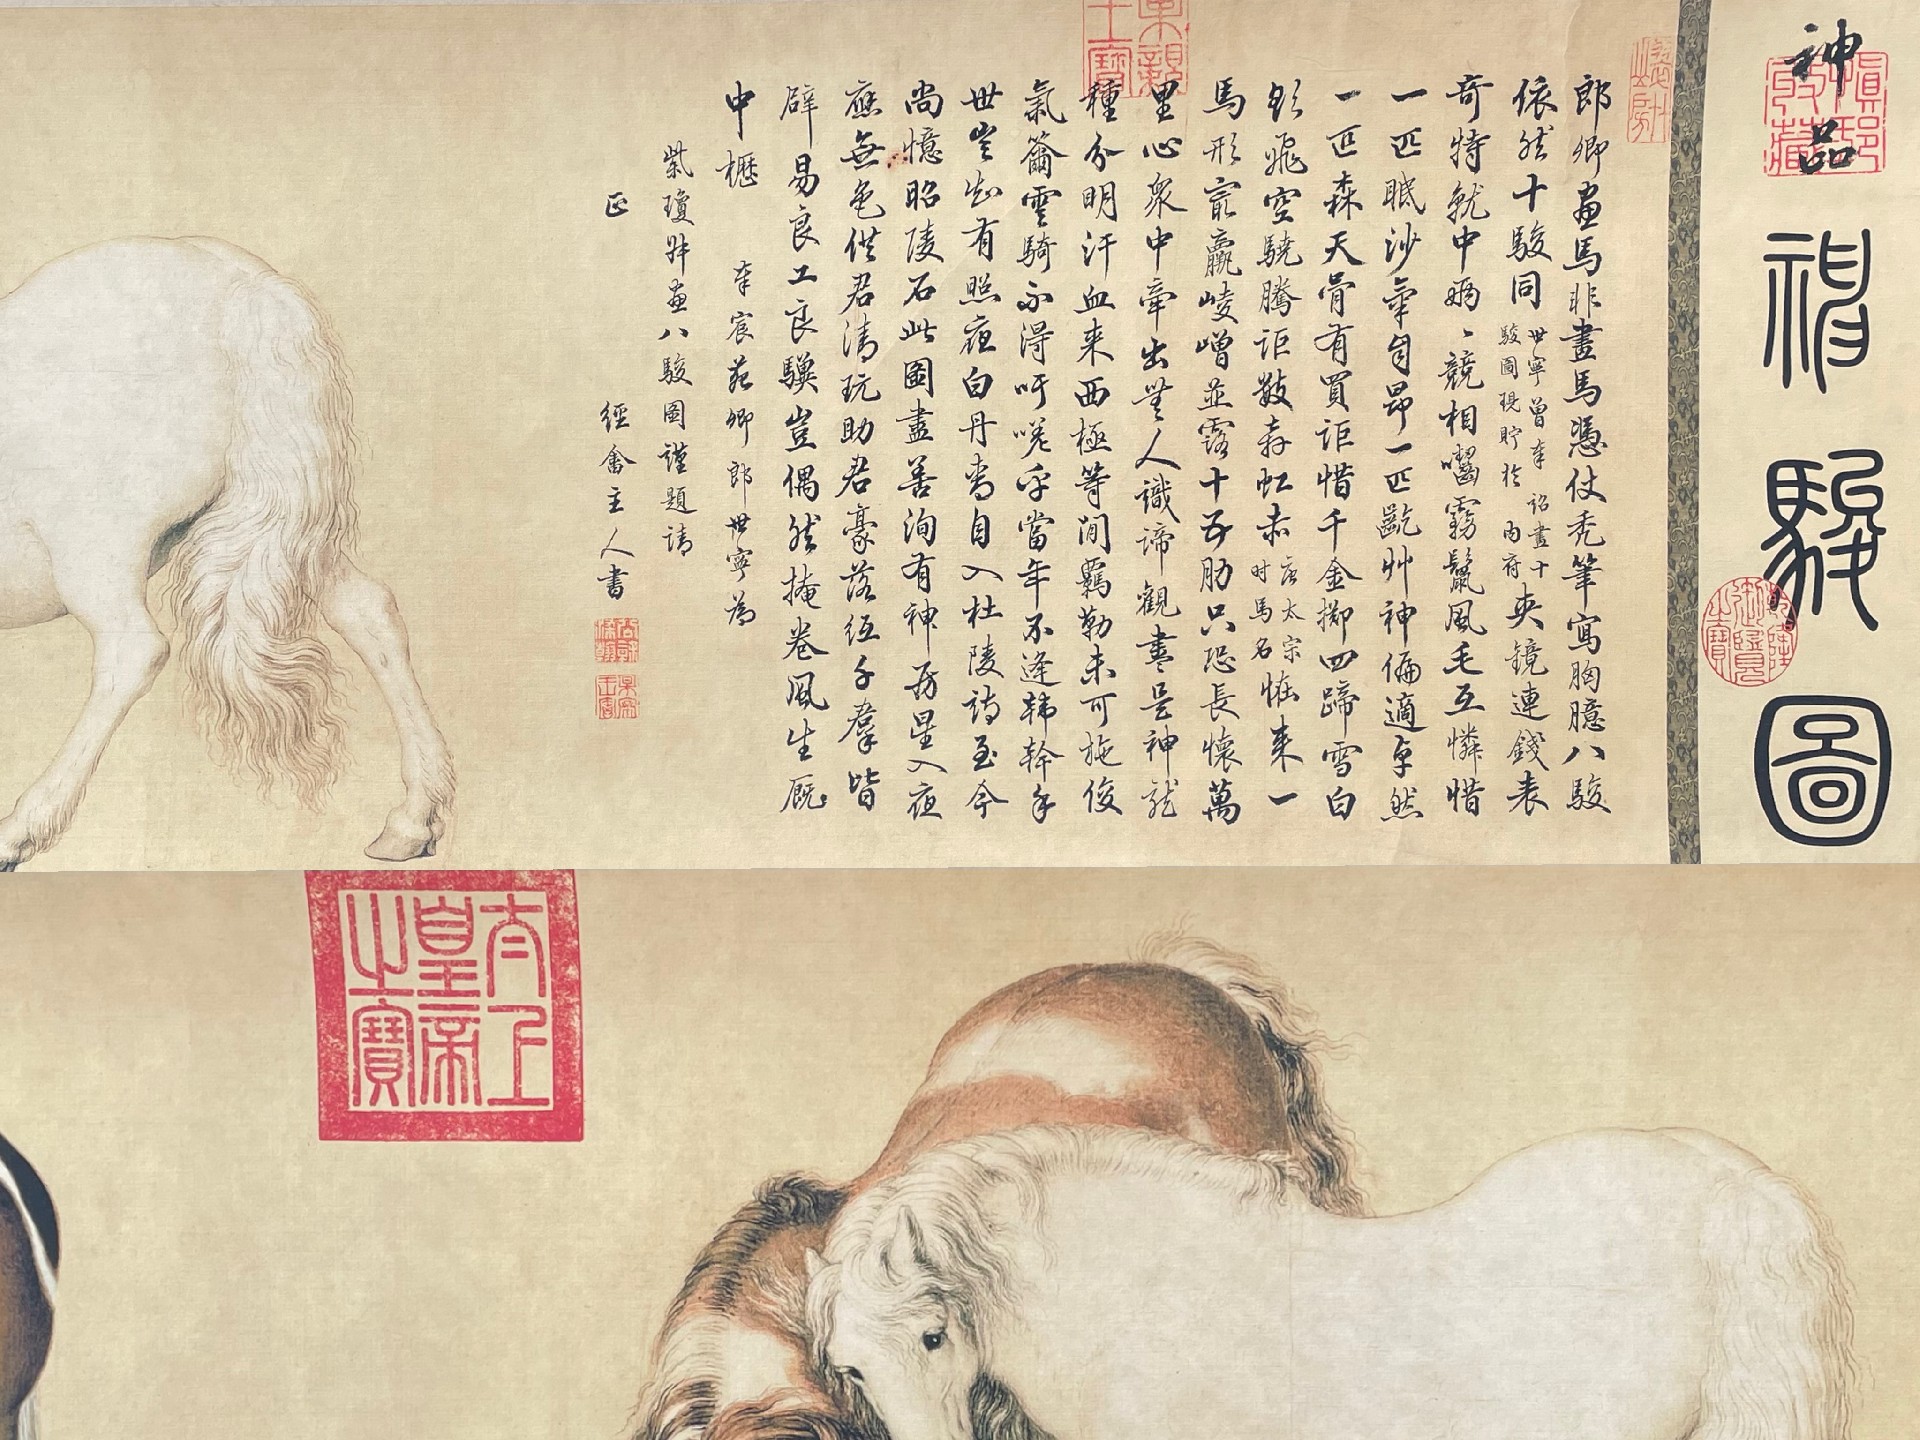 神品
神駿圖
郎卿畫馬非畫馬憑仗禿筆寫胸臆八駿
依然十駿同世寧曾奉詔畫十駿圖現貯於內府夾鏡連錢表
奇特就中兩〻競相嚙霧鬣風毛互憐惜
一匹眠沙氣自昂一匹齕艸神偏適卓然
一匹森天骨有買詎惜千金擲四蹄雪白
彩飛空驍騰詎數奔虹赤唐太宗时馬名恠来一
馬形寂羸崚嶒並露十五肋只恐長懷萬
里心眾中牽出無人識諦觀盡是神龍
種分明汗血来西極等閒羈勒未可施俊
氣籋雲騎不得吁嗟乎當年不逢韓幹手
世豈知有照夜白丹青自入杜陵詩至今
尚憶昭陵石此圖盡善洵有神房星入夜
應無色供君清玩助君豪落紙千群皆
辟易良工良驥豈偶然掩卷風生厩
中櫪 奉宸苑卿郎世寧為
紫瓊叔畫八駿圖謹題請
正 經畬主人書
果親王寶
乾隆御覽之寶
太上皇帝之寶